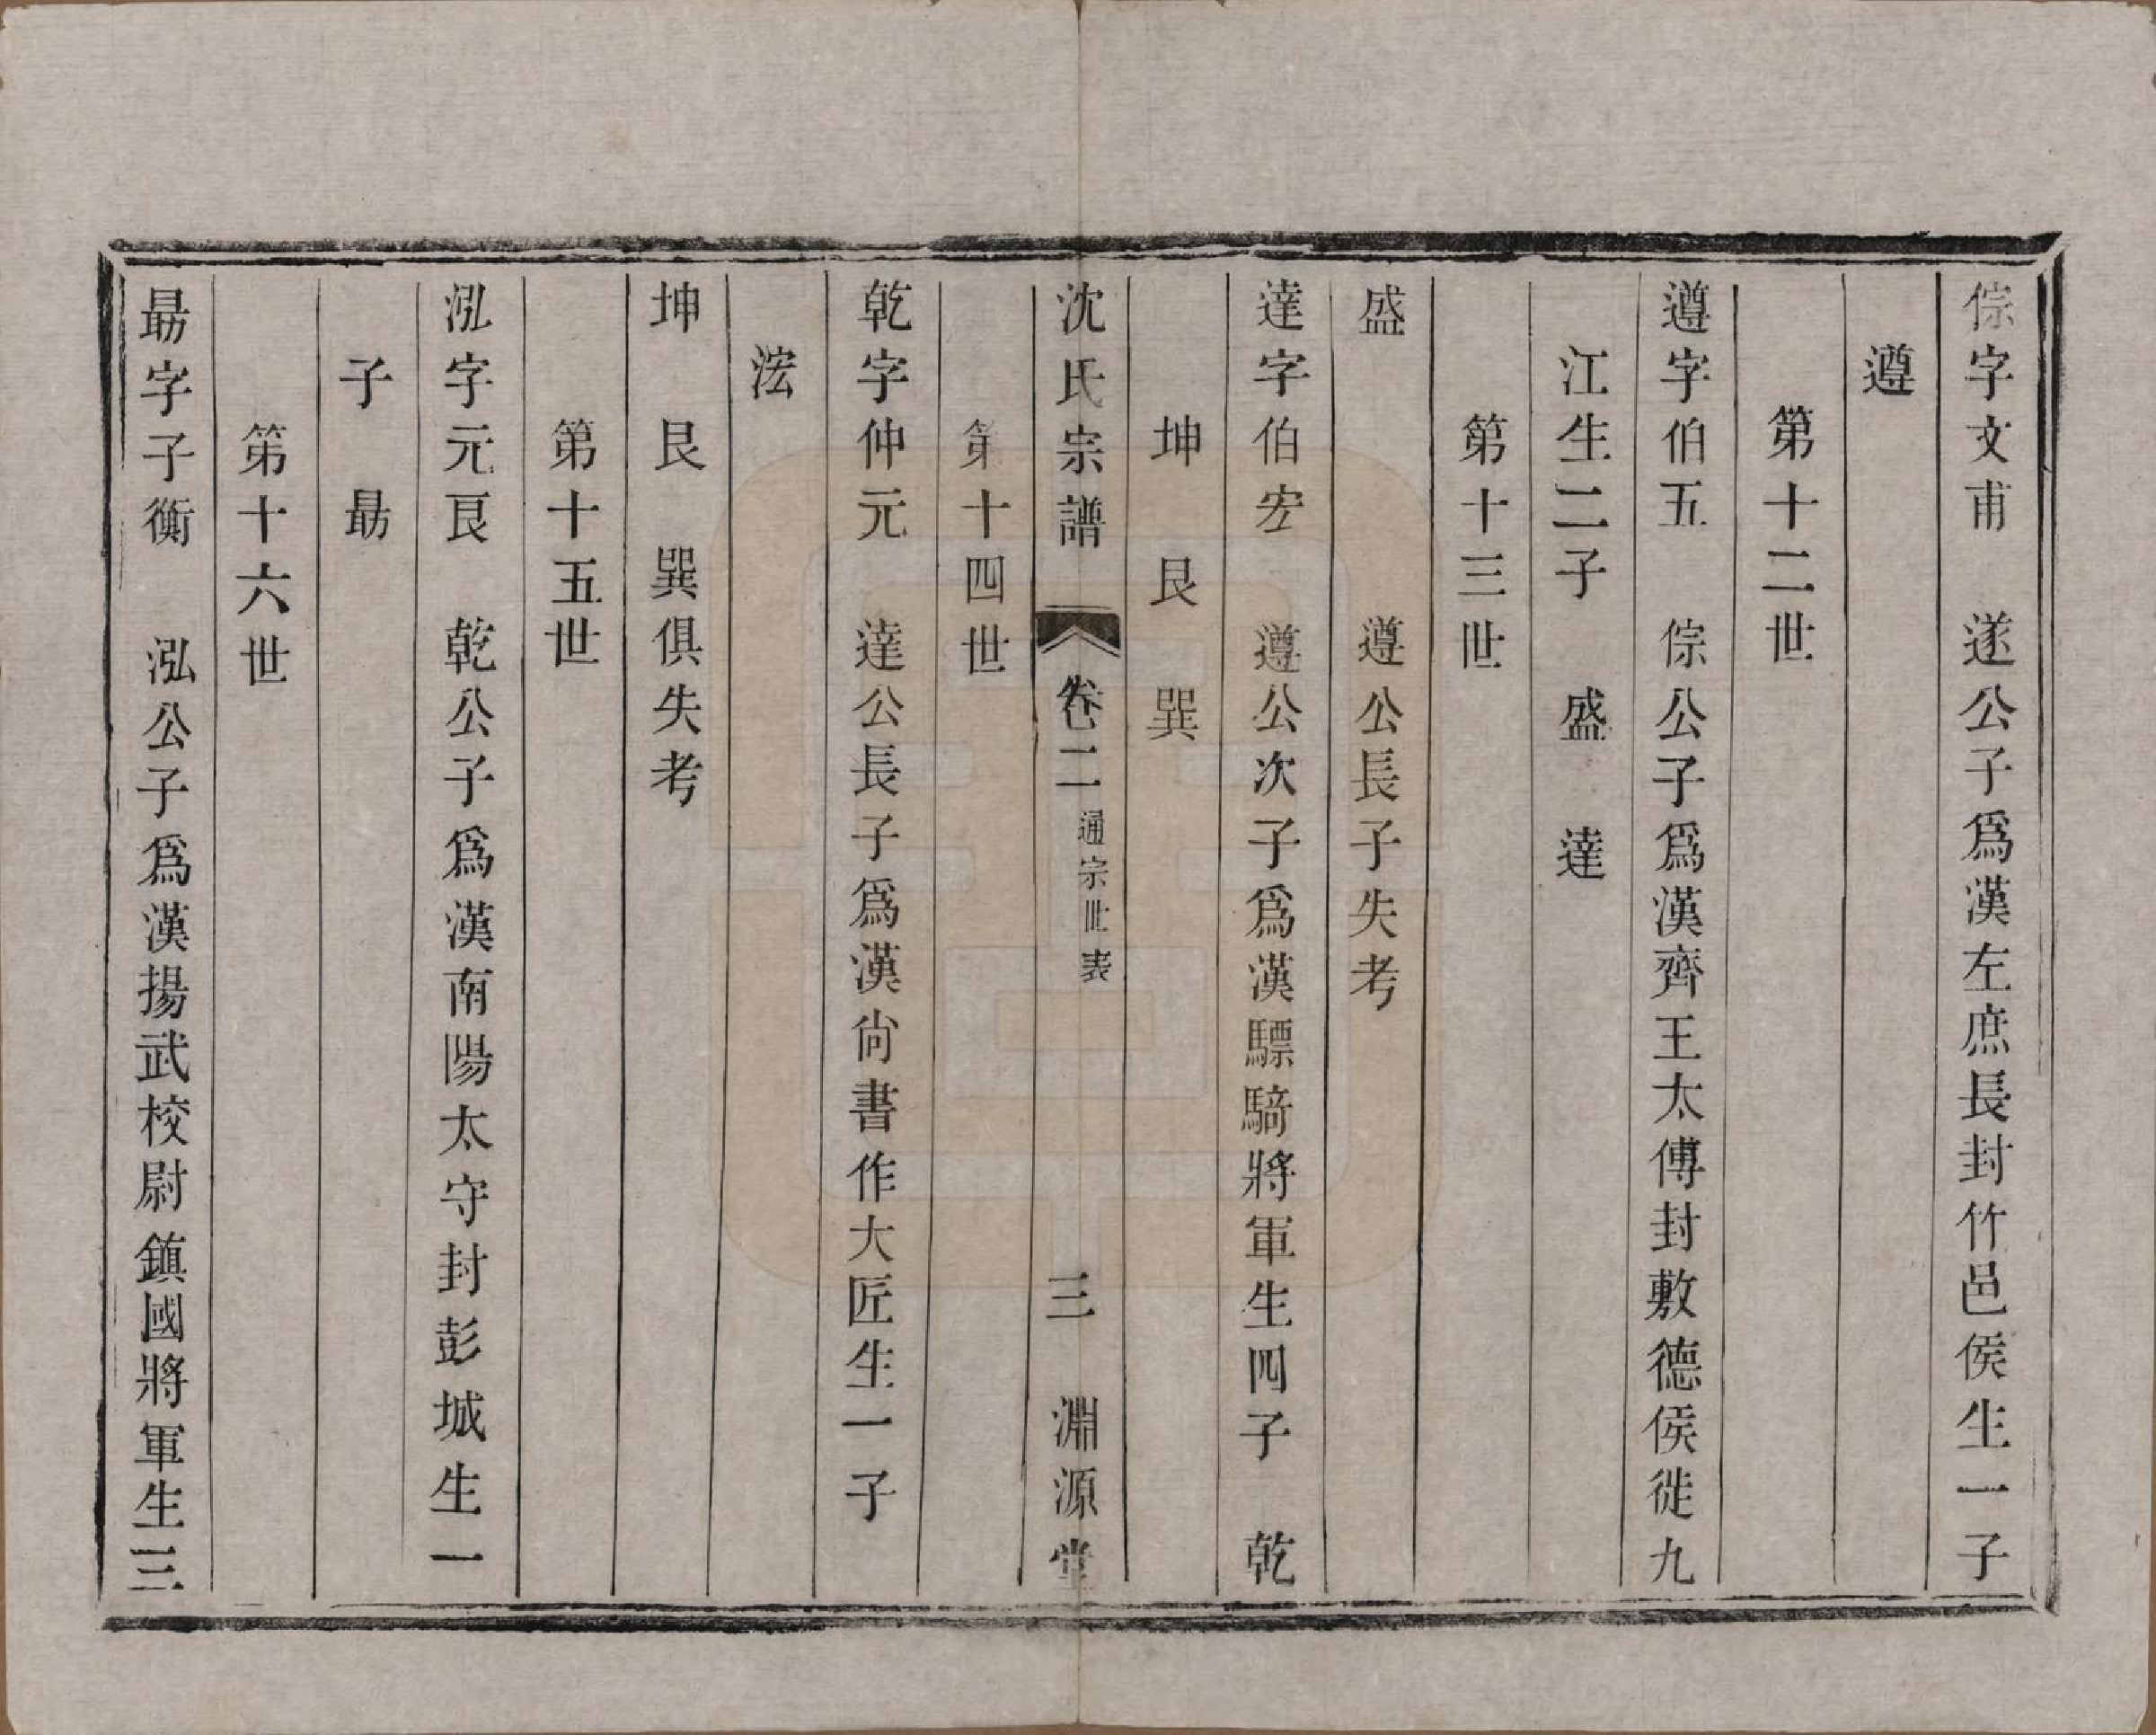 倧字文甫　遂公子爲漢左庶長封竹邑侯生一子
遵
第十二世
遵字伯五　倧公子爲漢齊王太傅封敷德侯徙九
江生二子　盛　達
第十三世
盛　遵公長子失考
達字伯宏　遵公次子爲漢驃騎將軍生四子　乾
坤　艮　巽
沈氏宗譜　卷二　通宗世表　三　淵源堂
第十四世
乾字仲元　達公長子爲漢尙書作大匠生一子
浤
坤　艮　巽俱失考
第十五世
泓字元艮　乾公子爲漢南陽太守封彭城生一
子　勗
第十六世
勗字子衡　泓公子爲漢揚武校尉鎮國將軍生三